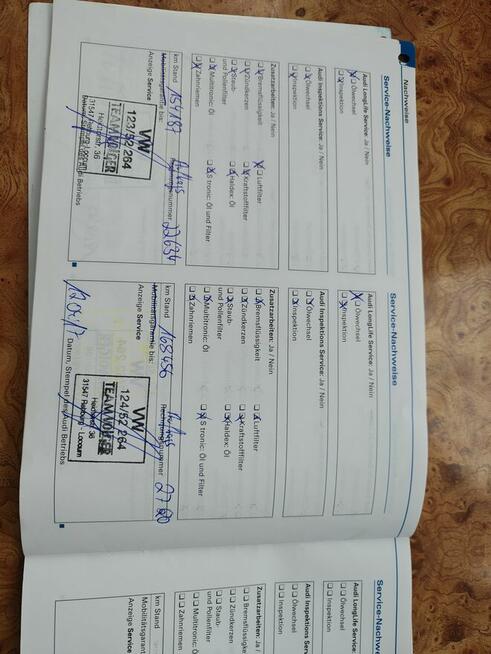 Nachweise
Service-Nachweise
Audi LongLife Service: Ja / Nein
Ölwechsel
Inspektion
Audi Inspektions Service: Ja / Nein
Ölwechsel
Inspektion
Zusatzarbeiten: Ja / Nein
Bremsflüssigkeit
Luftfilter
Zündkerzen
Kraftstofffilter
Staub-
und Pollenfilter
Haldex: Öl
Multitronic: Öl
S tronic: Öl und Filter
Zahnriemen
km Stand
Mobilitätsgarantie bis:
22634
Anzeige Service
VW
123/52 264
TEAM WOLTER
Heidtorstr. 36
31547
Service-Nachweise
Audi LongLife Service: Ja / Nein
Ölwechsel
Inspektion
Audi Inspektions Service: Ja / Nein
Ölwechsel
Inspektion
Zusatzarbeiten: Ja / Nein
Bremsflüssigkeit
Luftfilter
Zündkerzen
Kraftstofffilter
Staub-
und Pollenfilter
Haldex: Öl
Multitronic: Öl
S tronic: Öl und Filter
Zahnriemen
km Stand 168456
Mobilitätsgarantie bis:
Anzeige Service
VW
124/52 264
TEAM WOLTER
36
31547 Rehburg - Loccum
Datum, Stempel des Audi Betriebs
Service-Nachw
Audi LongLife Service:
Ölwechsel
Inspektion
Audi Inspektions Service
Inspektion
Zusatzarbeiten: Ja / N
Bremsflüssigkeit
Zündkerzen
Staub-
und Pollenfilter
Multitronic: Öl
Zahnriemen
km Stand
Mobilitätsgarant
Anzeige Service